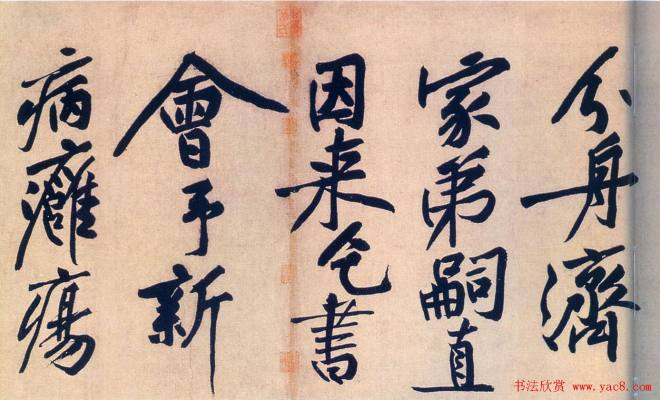 分舟濟
家弟嗣直
因来乞書
會予新
病癰瘍
书法欣赏 www.yac8.com